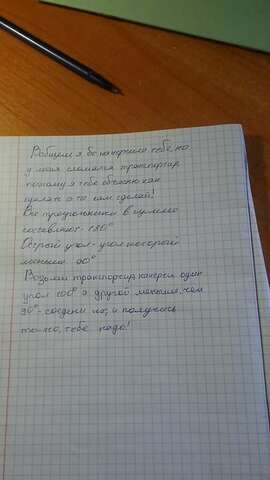 Вобщем я бе начертила тебе, но
у меня сломался транспортир
поэтому я тебе объясню как
сделать а ты сам сделай!
Все треугольники в сумме
составляют 180°
Острый угол - угол который
меньше 90°
Возьми транспортир, начерти один
угол 100° а другой меньше, чем
90° - соедени их, и получить
то что, тебе надо!